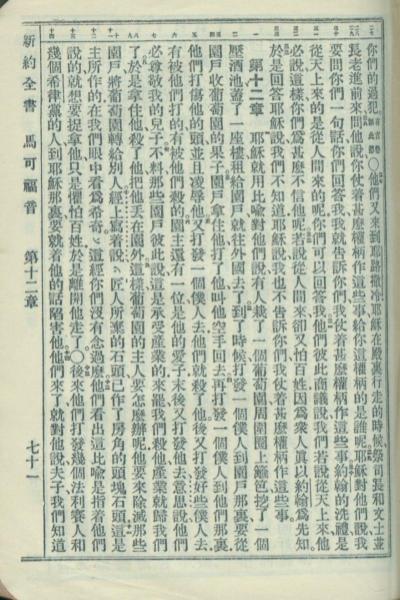 你們的過犯○他們又來到耶路撒冷耶穌在殿裏行走的時候祭司長和文士並
長老進前來問他說你仗着甚麼權柄作這些事給你這權柄的是誰呢耶穌對他們說我
要問你們一句話你們回答我我就告訴你們我仗着甚麼權柄作這些事約翰的洗禮是
從天上來的是從人間來的呢你們可以回答我他們彼此商議說我們若說從天上來他
必說這樣你們爲甚麼不信他呢若說從人間來卻又怕百姓因爲衆人眞以約翰爲先知
於是回答耶穌說我們不知道耶穌說我也不告訴你們我仗着甚麼權柄作這些事
第十二章 耶穌就用比喩對他們說有人栽了一個葡萄園周圍圈上籬笆挖了一個
壓酒池蓋了一座樓租給園戶就往外國去了到了時候打發一個僕人到園戶那裏要從
園戶收葡萄園的果子園戶拿住他打了他叫他空手回去再打發一個僕人到他們那裏
他們打傷他的頭並且凌辱他又打發一個僕人去他們就殺了他後又打發好些僕人去
有被他們打的有被他們殺的園主還有一位是他的愛子末後又打發他去意思說他們
必尊敬我的兒子不料那些園戶彼此說這是承受產業的來罷我們殺他產業就歸我們
了於是拿住他殺了他把他丟在園外這樣葡萄園的主人要怎麼辦呢他要來除滅那些
園戶將葡萄園轉給別人經上寫着說匠人所棄的石頭已作了房角的頭塊石頭這是
主所作的在我們眼中看爲希奇這經你們沒有念過麼他們看出這比喩是指着他們
說的就想要捉拿他只是懼怕百姓於是離開他走了○後來他們打發幾個法利賽人和
幾個希律黨的人到耶穌那裏要就着他的話陷害他他們來了就對他說夫子我們知道
新約全書 馬可福音 第十二章 七十一